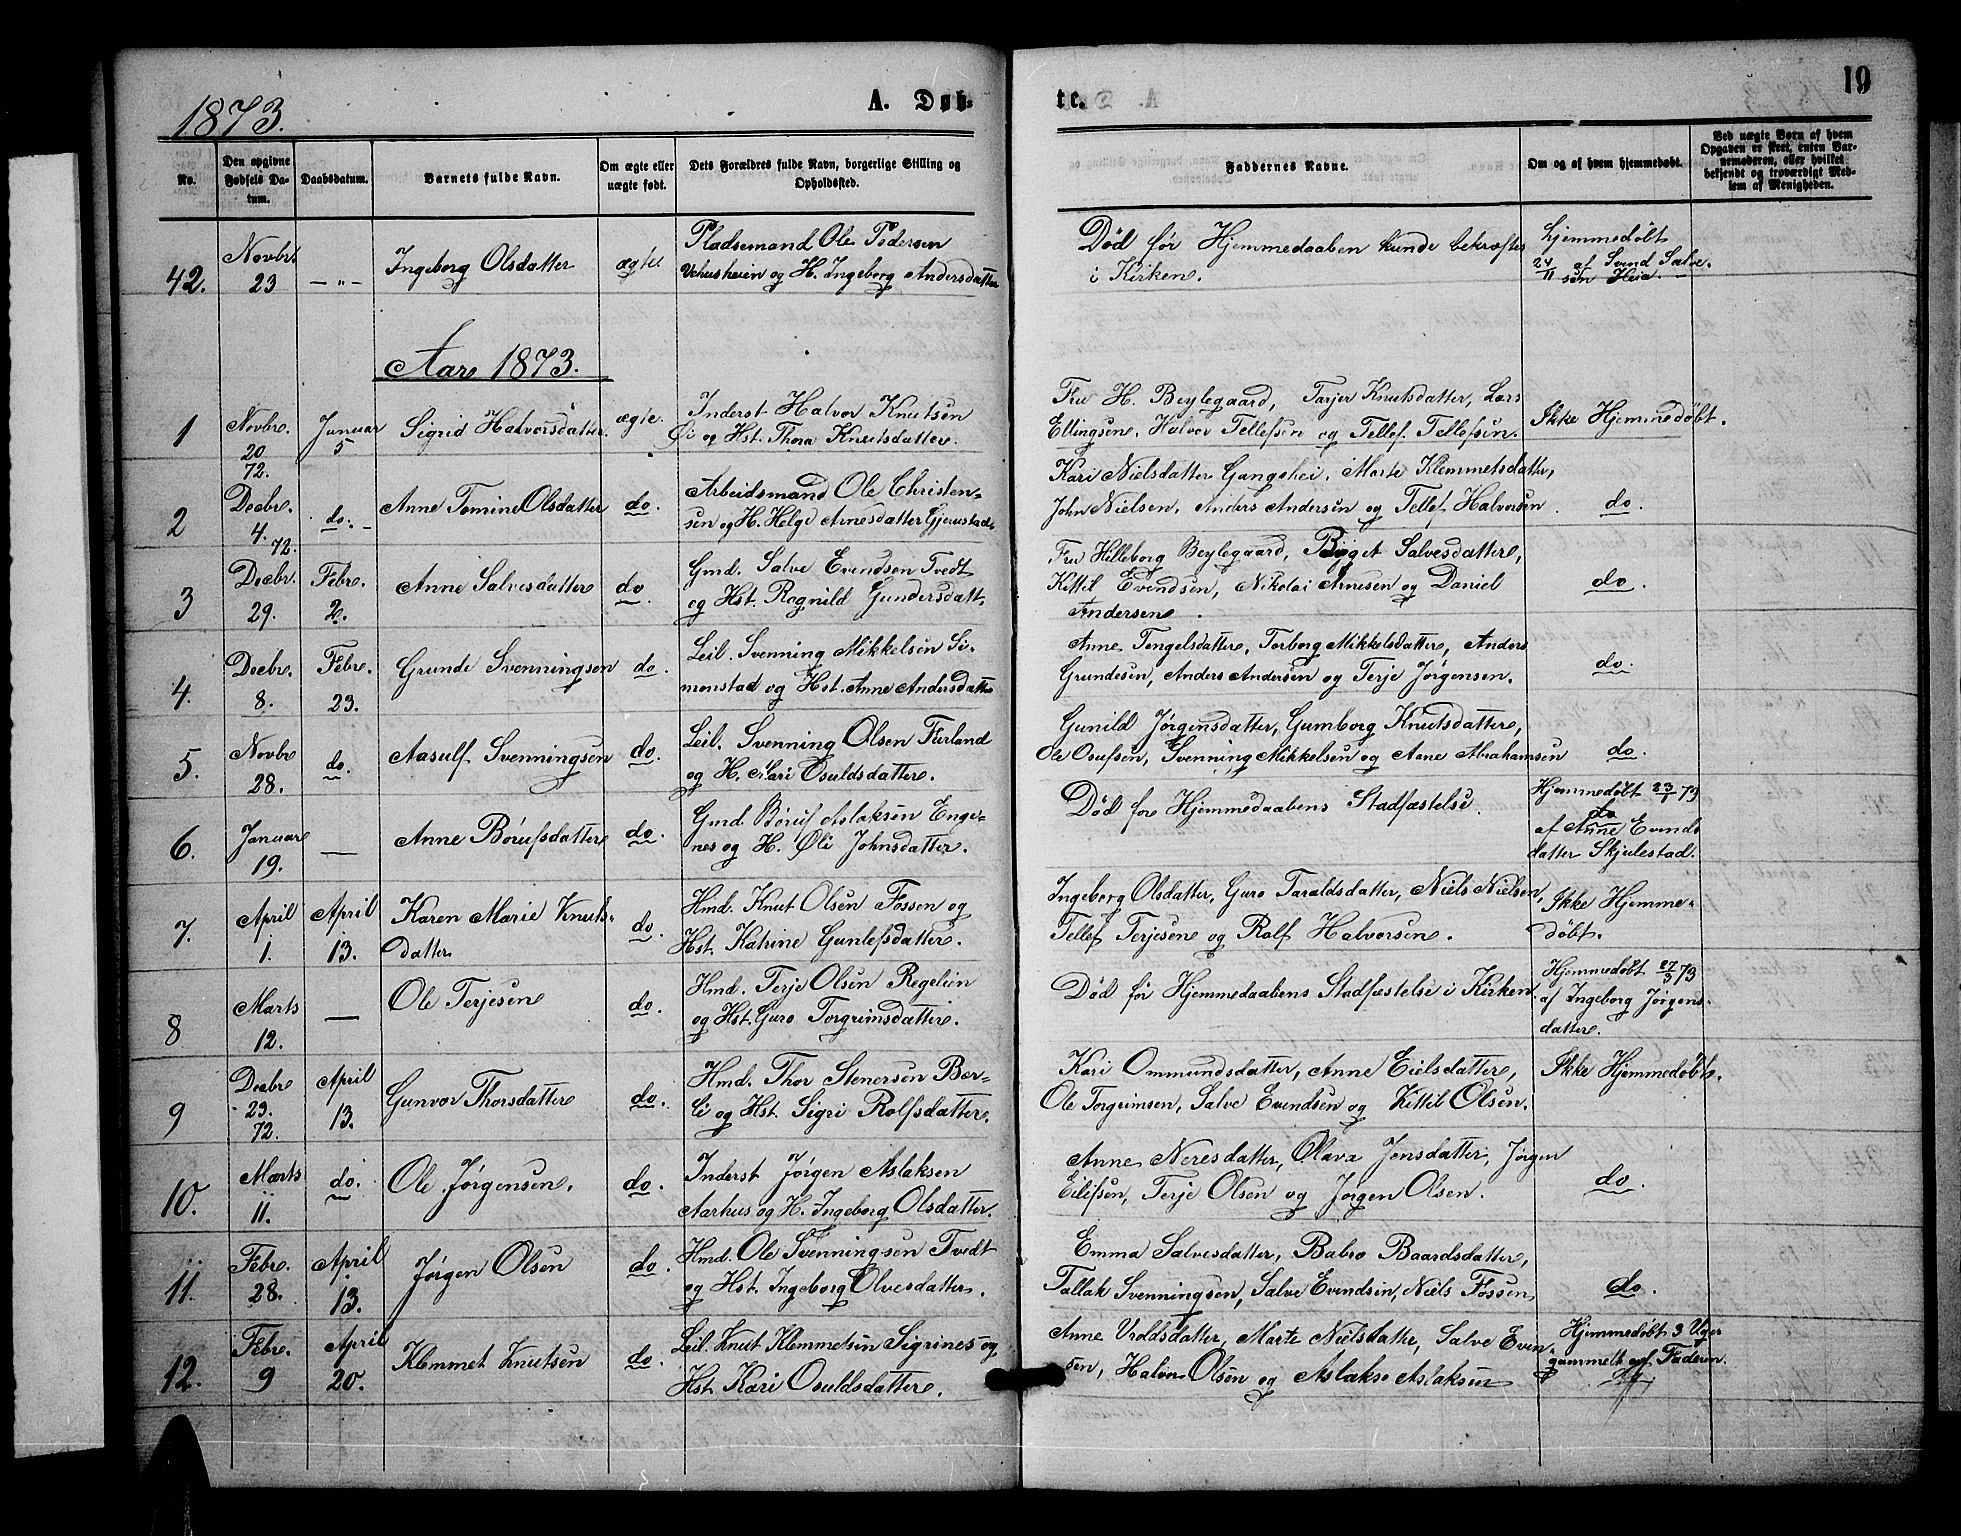 1873.
A. Døb-
te.
19
No.
Den opgivne Fødsels Da-tum.
Daabsdatum.
Barnets fulde Navn.
Om ægte eller uægte født.
Dets Forældres fulde Navn, borgerlige Stilling og Opholdsted.
Faddernes Navne.
Om og af hvem hjemmedøbt.
Ved uægte Børn af hvem Opgaven er sket, enten Bar-nemoderen, eller hvilket bekjendt og troværdigt Med-lem af Menigheden.
42. Novbr. 23 — " — Ingeborg Olsdatter ægte. Pladsemand Ole Pedersen
Vehusheien og H. Ingeborg Andersdatter
Død før Hjemmedaaben kunde bekræftes
i Kirken.
Hjemmedøbt
24/11 af Svend Salve-
sen Heia.
Aar 1873.
1 Novbre. 20 72. Januar 5 Sigrid Halvorsdatter. ægte. Inderst Halvor Knutsen
Øi og Hst. Thora Knutsdatter.
Fru H. Beylegaard, Tarjer Knutsdatter, Lars
Ellingsen, Halvor Tellefsen og Tellef Tellefsen.
Ikke Hjemmedøbt.
2 Decbre. 4. 72. do. Anne Tomine Olsdatter do. Arbeidsmand Ole Christen-
sen og H. Helge Arnesdatter Gjerustad.
Kari Nielsdatter Gangshei, Marte Klemmetsdatter,
John Nielsen, Anders Andersen og Tellef Halvorsen.
do.
3 Decbr. 29. Febre. 2. Anne Salvesdatter do. Gmd. Salve Evendsen Tvedt
og Hst. Rognild Gundersdatt.
Fru Hilleborg Beylegaard, Birget Salvesdatter,
Kittil Evendsen, Nikolai Arnesen og Daniel
Andersen.
do.
4. Decbre. 8. Febre. 23. Grunde Svenningsen do. Leil. Svenning Mikkelsen Si-
monstad og Hst. Anne Andersdatter
Anne Tengelsdatter, Torborg Mikkelsdatter, Anders
Grundesen, Anders Andersen og Terje Jørgensen.
do.
5. Novbre 28. do. Aasulf Svenningsen do. Leil. Svenning Olsen Furland
og H. Mari Osuldsdatter.
Gunild Jørgensdatter, Gumborg Knutsdatter,
Ole Osufsen, Svenning Mikkelsen og Arne Abrahamsen
do.
6. Januar 19. — Anne Børufsdatter do. Gmd. Børuf Aslaksen Enge-
nes og H. Øli Johnsdatter.
Død for Hjemmedaabens Stadfæstelse.
Hjemmedøbt 23/1 73
af Anne Evends
datter Skjulestad.
7. April 1. April 13. Karen Marie Knuts-
datter do. Hmd. Knut Olsen Fossen og
Hst. Katrine Gunlefsdatter.
Ingeborg Olsdatter, Guro Taraldsdatter, Niels Nielsen,
Tellef Terjesen og Rolf Halvorsen.
Ikke Hjemme-
døbt.
8 Marts 12. — Ole Terjesen do. Hmd. Terje Olsen Regelien
og Hst. Guro Torgrimsdatter.
Død før Hjemmedaabens Stadfæstelse i Kirken.
Hjemmedøbt 27/3 73
af Ingeborg Jørgens-
datter.
9 Decbre 23. 72. April 13. Gunvor Thorsdatter do. Hmd. Thor Stenersen Ber-
li og Hst. Sigri Rolfsdatter.
Kari Ommundsdatter, Anne Eielsdatter,
Ole Torgrimsen, Salve Evendsen og Kittil Olsen.
Ikke Hjemmedøbt.
10. Marts 11. do. Ole Jørgensen. do. Inderst Jørgen Aslaksen
Aarhus og H. Ingeborg Olsdatter.
Anne Neresdatter, Olava Jensdatter, Jørgen
Eilefsen, Terje Olsen og Jørgen Olsen.
do.
11. Febre. 28. April 13. Jørgen Olsen do. Hmd. Ole Svenningsen Tvedt
og Hst. Ingeborg Olvesdatter.
Emma Salvesdatter, Babro Baardsdatter,
Tallak Svenningsen, Salve Evendsen, Niels Fossen
do.
12. Febre. 9 April 20. Klemmet Knutsen do. Leil. Knut Klemmetsen Sigrines og
Hst. Kari Osuldsdatter.
Anne Uroldsdatter, Marte Nielsdatter, Salve Even-
sen, Halvor Olsen og Aslak Aslaksen
Hjemmedøbt 3 Uger
gammelt af Faderen.